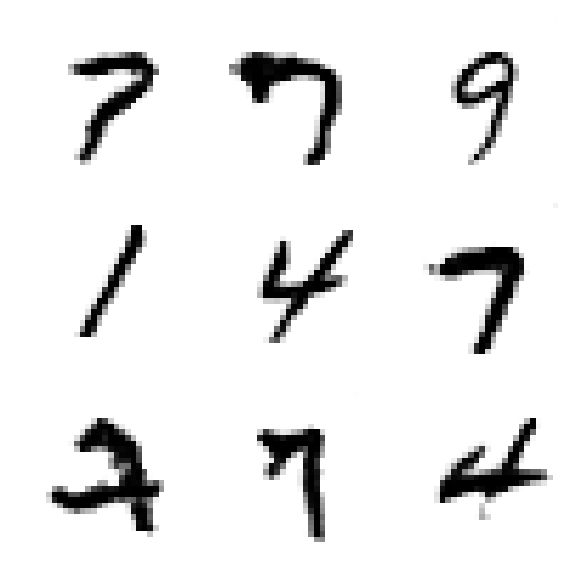 7 7 9
1 4 7
7 7 4